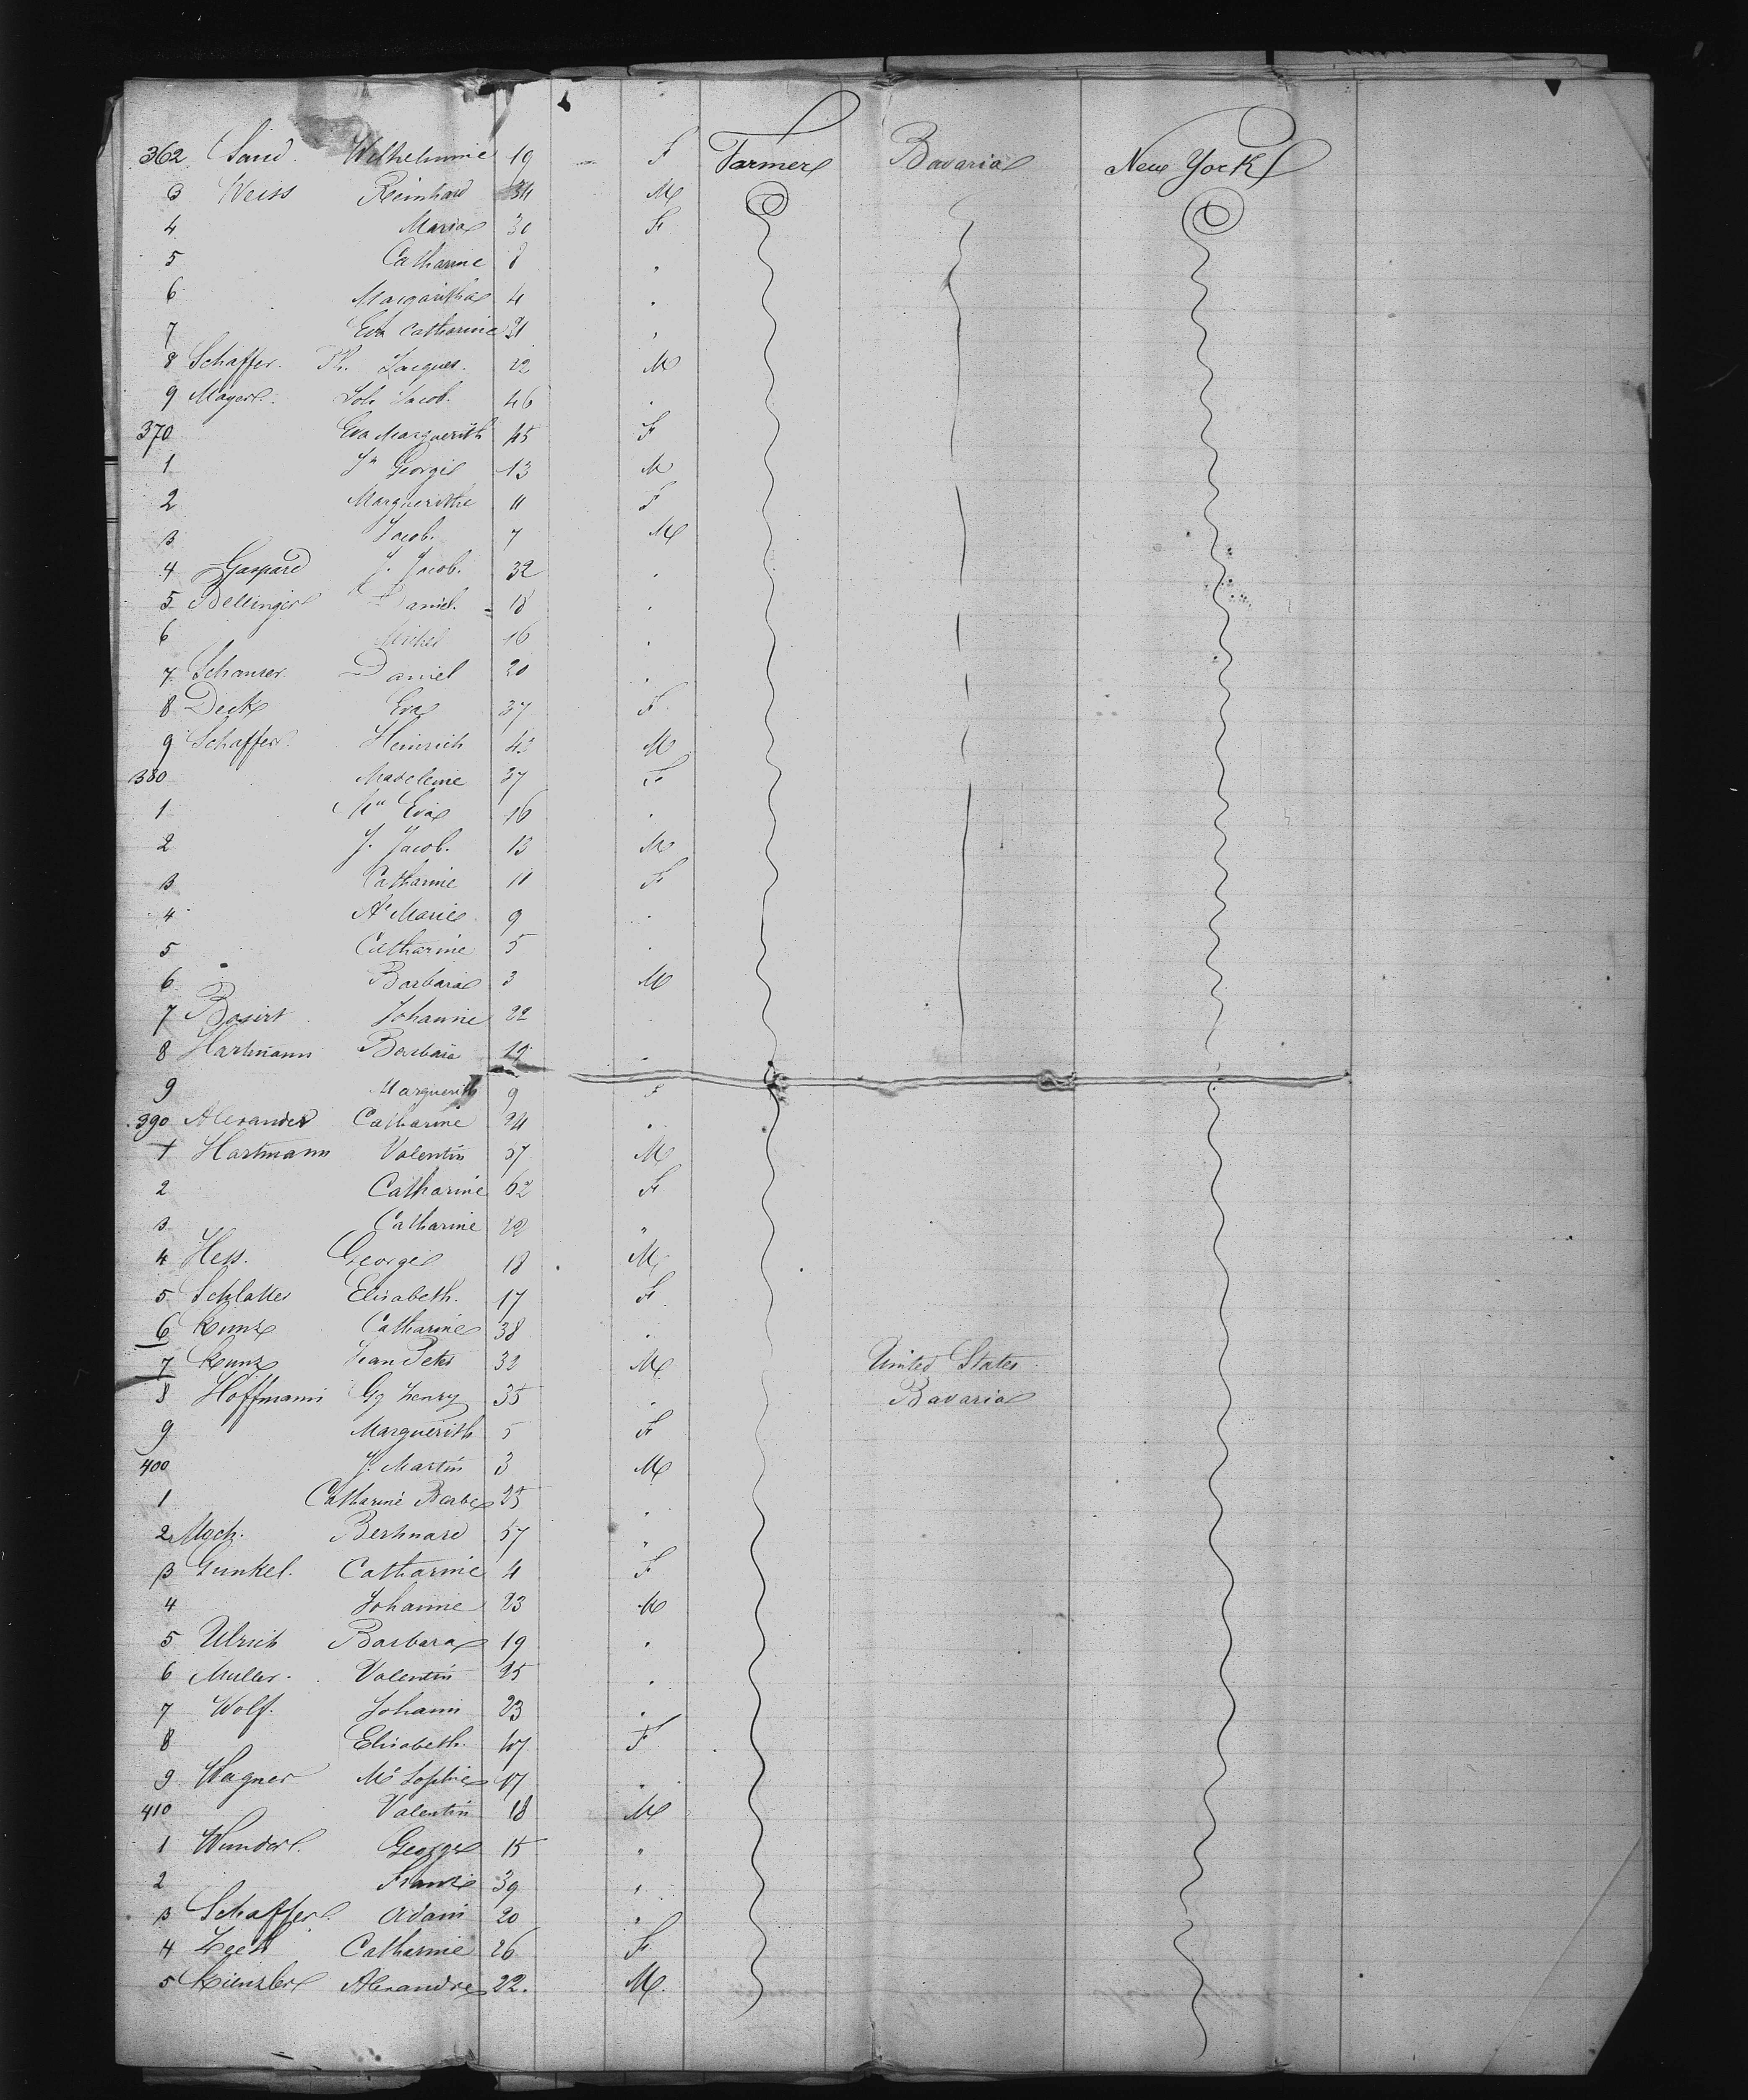 362 Sand. Wilhelmine 19 F Farmer Bavaria New York
3 Weiss Reinhard 34 M
4 Maria 30 F
5 Catharine 8 "
6 Margaritha 4 "
7 Eva Catharine "
8 Schaffer. Ph. Jacques. 22 M
9 Mayer. Joh Jacob. 46 "
370 Eva Marguerith 45 F
1 Jn George 13 M
2 Marguerithe 11 F
3 Jacob. 7 M
4 Gaspard J. Jacob. 32 "
5 Bellinger Daniel. 18 "
6 Michel 16 "
7 Schanrer Daniel 20 "
8 Deck Eva 37 F
9 Schaffer Heinrich M
380 Madeleine 37 F
1 Eva 16 "
2 J. Jacob. 13 M
3 Catharine 11 F
4 A. Marie 9 "
5 Catharine 5 "
6 Barbara 3 M
7 Johanne 22 "
8 Hartmann Barbara 19 "
9 Marguerith 9 F
390 Alexander Catharine 24 "
1 Hartmann Valentin 57 M
2 Catharine 62 F
3 Catharine 22 "
4 Hess. George 18 M
5 Schlatter Elisabeth. 17 F
6 Kunz Catharine 38 "
7 Kunz Jean Peter 32 M United States
8 Hoffmann Gg henry 35 " Bavaria
9 Marguerith 5 F
400 J. Martin 3 M
1 Catharine Barbe 25 "
2 Moch. Berhnard 57 "
3 Gunkel. Catharine 4 F
4 Johanne 23 M
5 Ulrich Barbara 19 "
6 Muller. Valentin 25 "
7 Wolf. Johann 23 "
8 Elisabeth. 47 F
9 Wagner Me Sophie 17 "
410 Valentin 18 M
1 Wunder. George 15 "
2 Franz 39 "
3 Schaffer. Adam 20 "
4 Zech Catharine 26 F
5 Kienzler Alexandre 22. M.